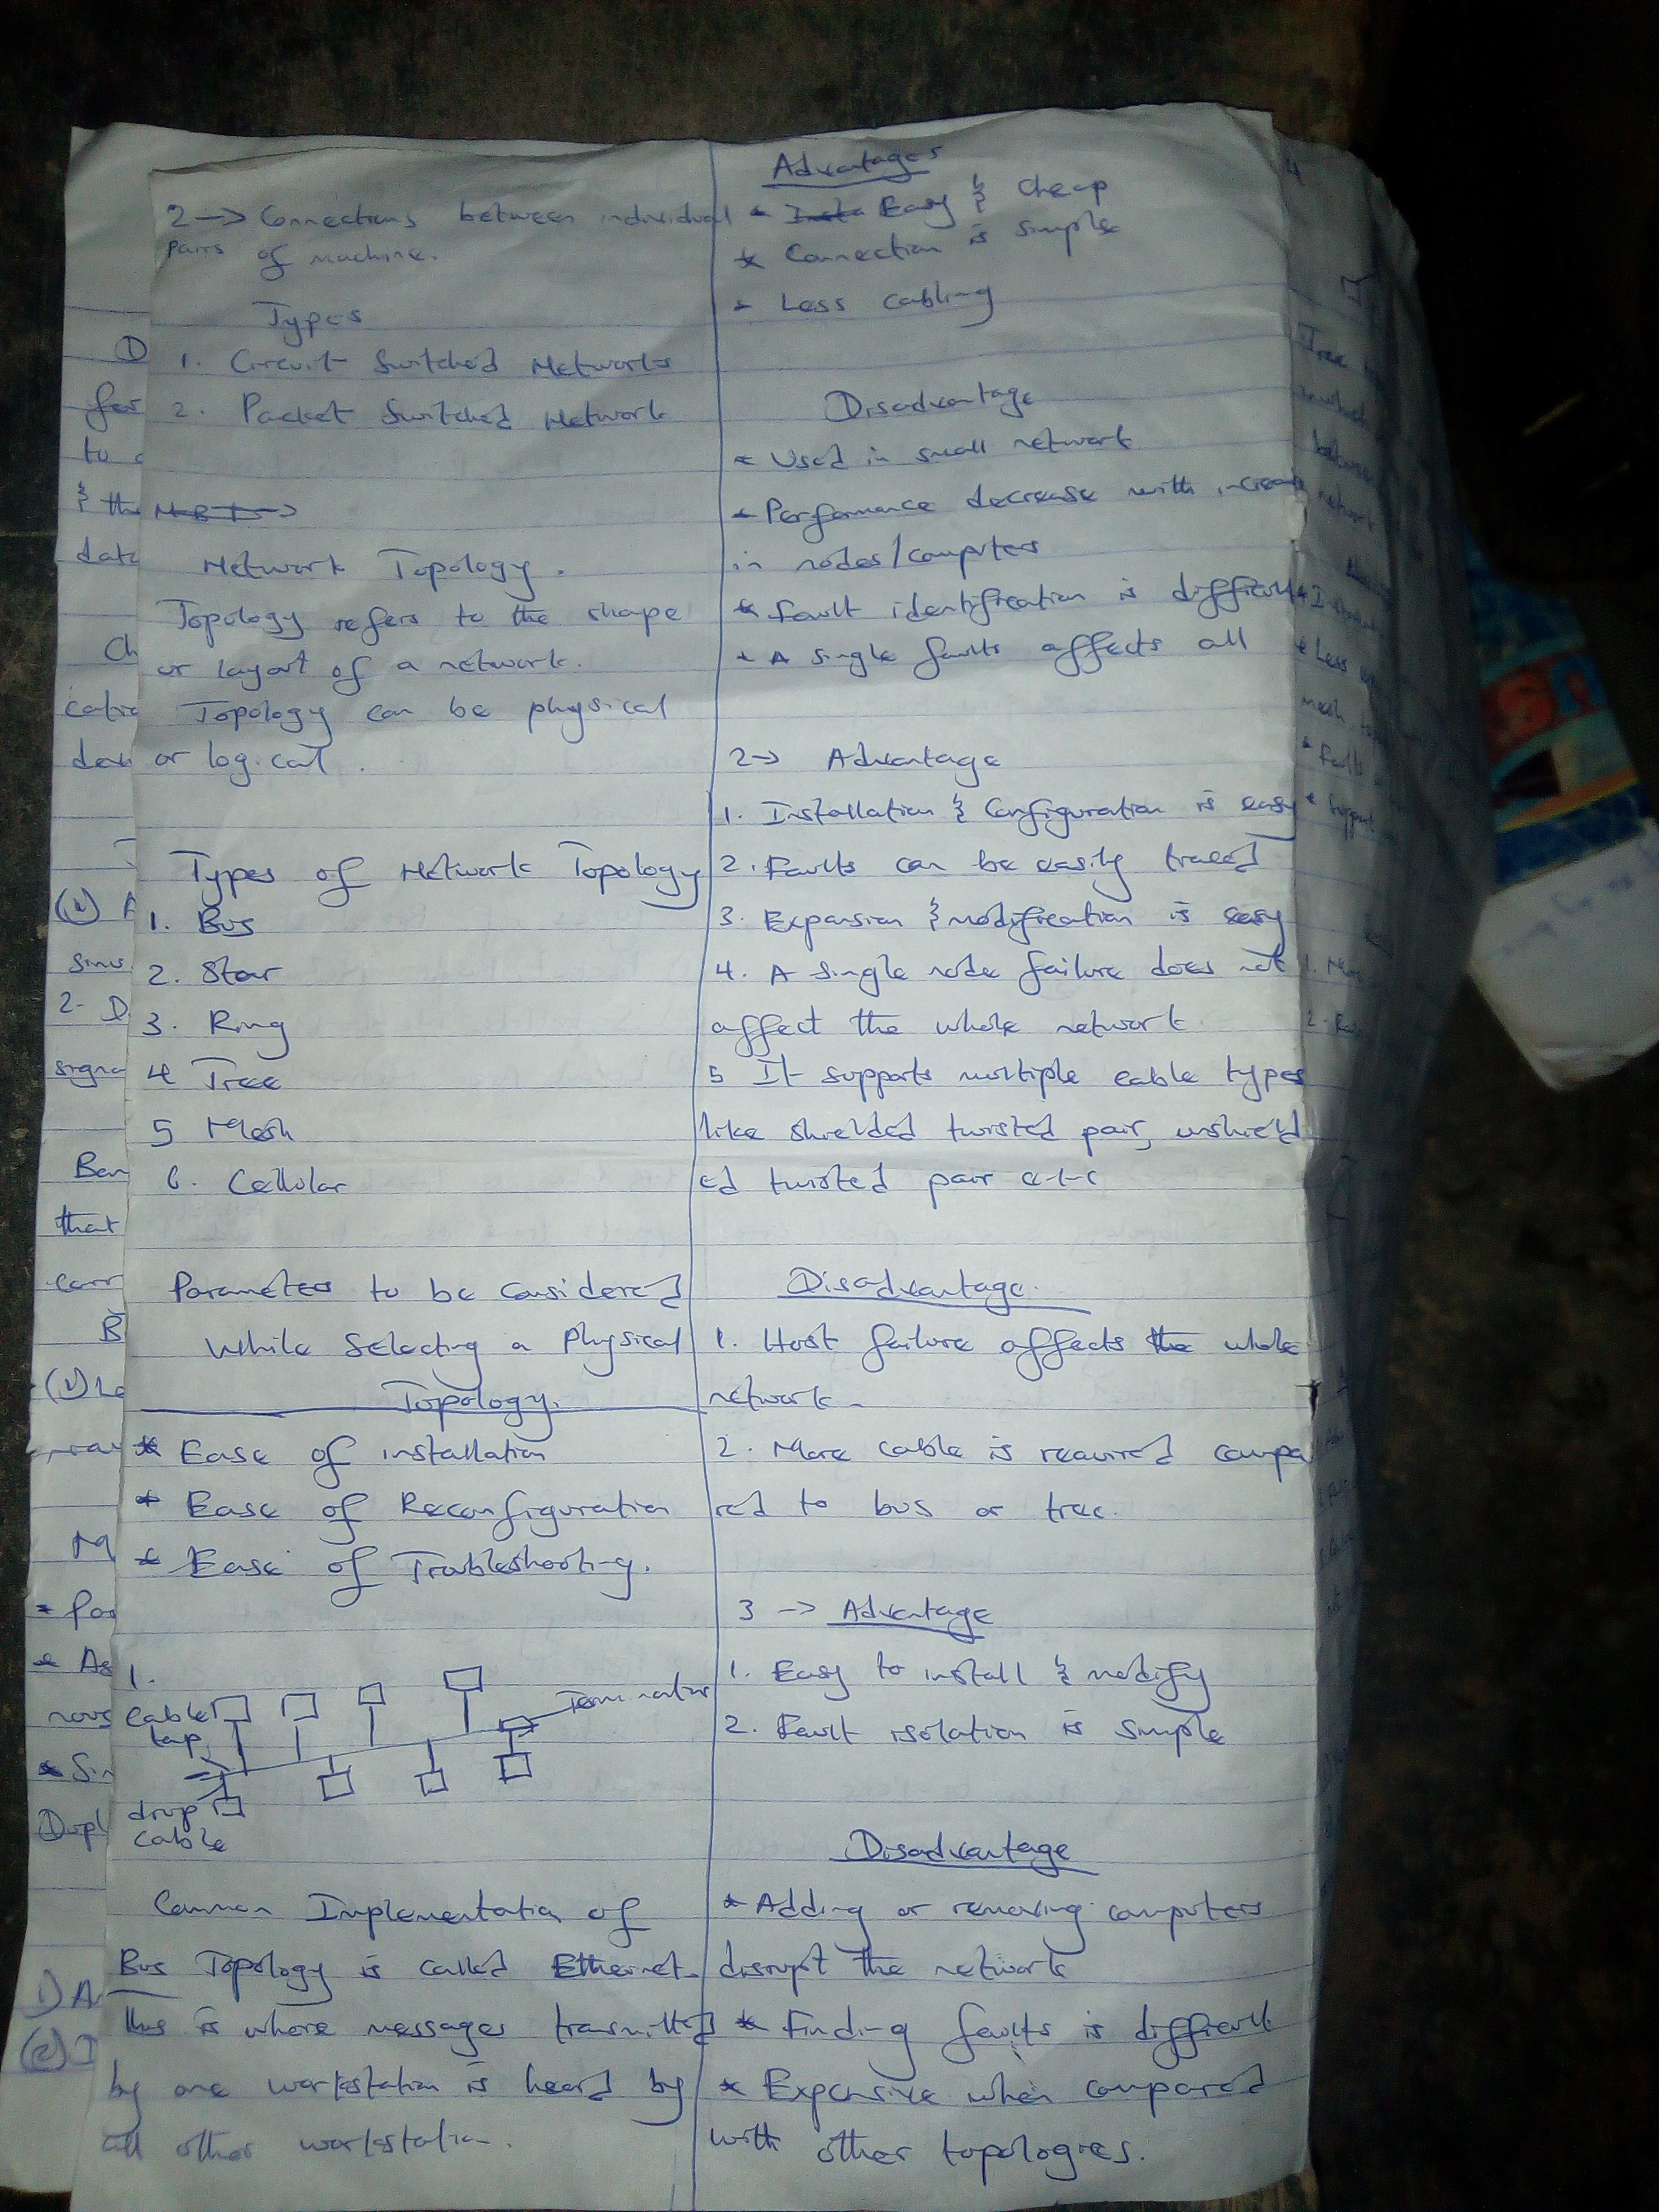 2 -> Connections between individual
pairs of machine.
Types
1. Circuit Switched Networks
2. Packet Switched Network
Network Topology.
Topology refers to the shape
or layout of a network.
Topology can be physical
or logical.
Types of Network Topology
1. Bus
2. Star
3. Ring
4 Tree
5 Mesh
6. Cellular
Parameters to be Considered
While Selecting a Physical
Topology.
* Ease of installation
* Ease of Reconfiguration
* Ease of Troubleshooting.
1.
Cable
tap
Terminator
drop
cable
Common Implementation of
Bus Topology is called Ethernet.
this is where messages transmitted
by one workstation is heard by
all other workstation.
Advantages
* Easy & cheap
* Connection is simple
* Less cabling
Disadvantage
* Used in small network
* Performance decrease with increase
in nodes/computers
* Fault identification is difficult
* A single faults affects all
2-> Advantage
1. Installation & Configuration is easy
2. Faults can be easily traced
3. Expansion & modification is easy
4. A single node failure does not
affect the whole network
5 It supports multiple cable types
like shielded twisted pair, unshield
ed twisted pair e.t.c
Disadvantage.
1. Host failure affects the whole
network.
2. More cable is required compa
red to bus or tree.
3 -> Advantage
1. Easy to install & modify
2. Fault isolation is simple
Disadvantage
* Adding or removing computers
disrupt the network
* Finding faults is difficult
* Expensive when compared
with other topologies.
D
to
& the
data
Ch
2- D
signa
Ban
that
carr
B
M
* Sim
Dupl
4
Tree
* Less
mesh